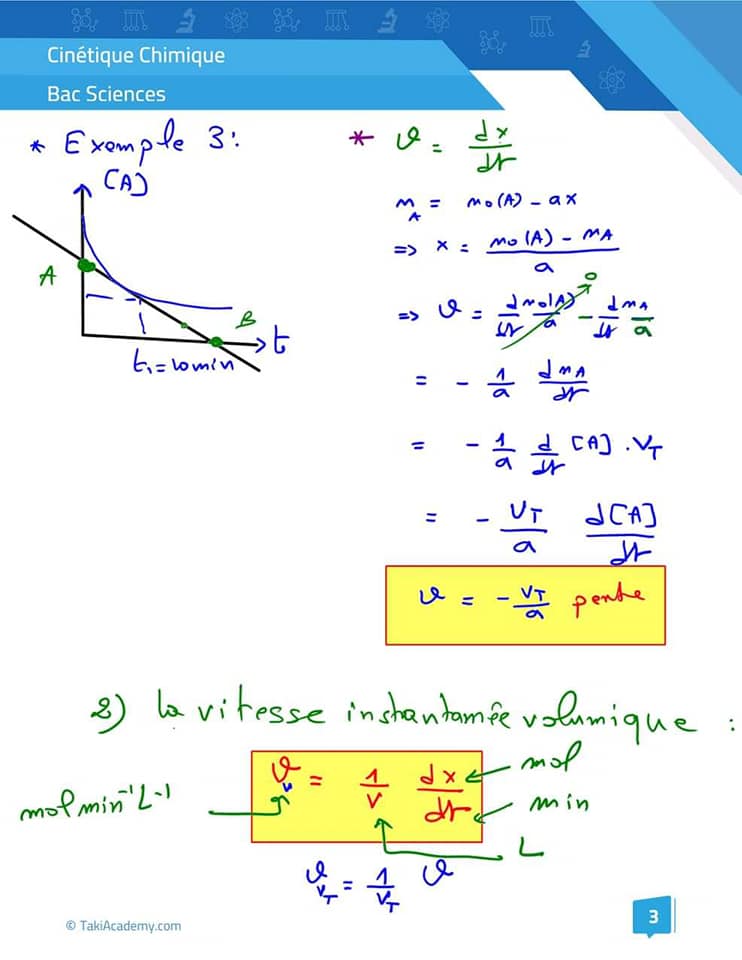 Cinétique Chimique
Bac Sciences
* Exemple 3:
[A]
A
B
t
t₁ = 10 min
* v = dx/dt
n_A = n₀(A) - ax
=> x = (n₀(A) - n_A)/a
=> v = dn₀(A)/dt a → 0 - dn_A/dt a
= - 1/a dn_A/dt
= - 1/a d/dt [A] . V_T
= - V_T/a d[A]/dt
v = - V_T/a pente
2) la vitesse instantanée volumique :
mol min⁻¹ L⁻¹
v_v = 1/V dx/dt
mol
min
L
v_{V_T} = 1/V_T v
© TakiAcademy.com
3